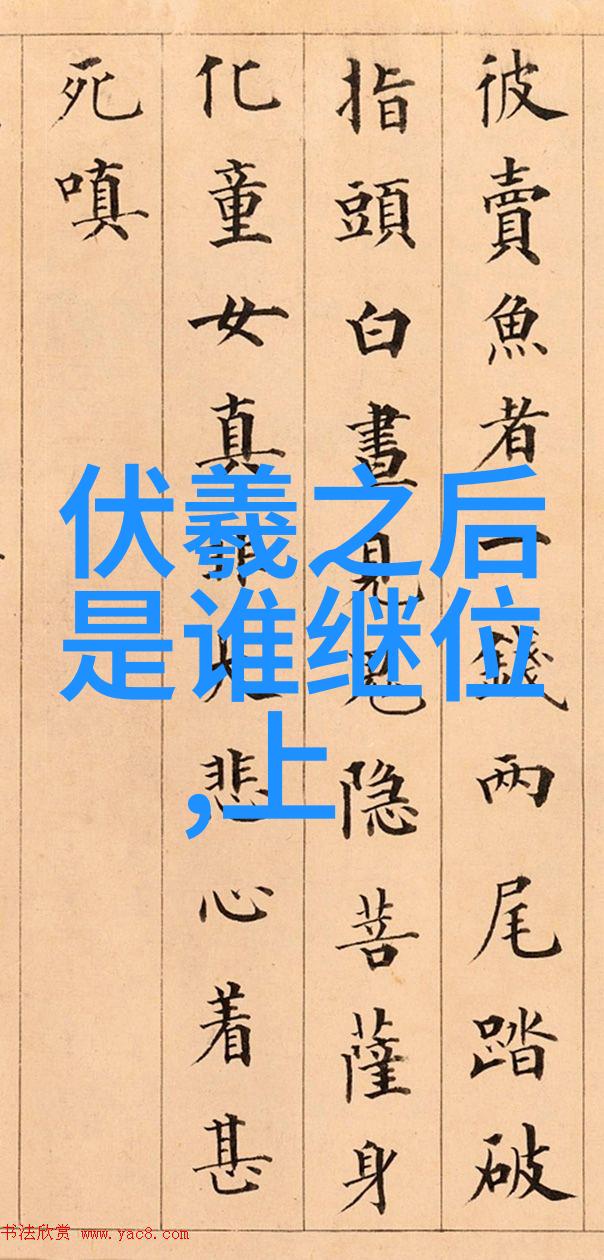 彼賣魚者一錢两尾踏破
指頭白晝見鬼隐菩薩身
化童女真大悲心着甚
死嗔
伏羲之后
是谁继位
,上
书法欣赏 www.yac8.com